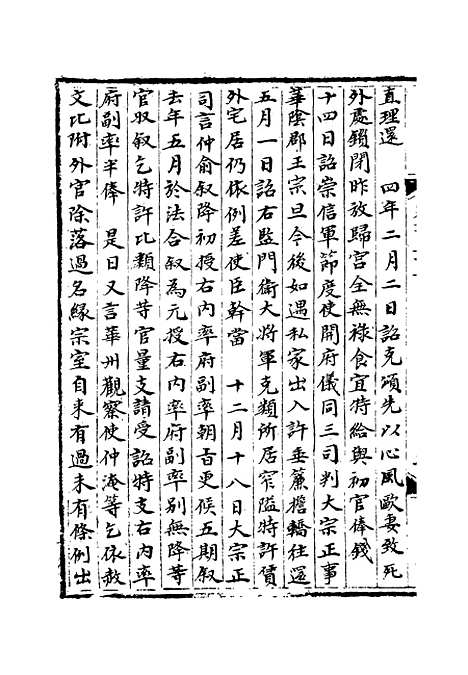 直理還　四年二月二日詔克頌先以心風歐妻致死
外處鎖閉昨放歸宫全無禄食宜特給與初官俸錢
十四日詔崇信軍節度使開府儀同三司判大宗正事
華陰郡王宗旦今後如遇私家出入許垂簾檐轎往還
五月一日詔右監門衛大將軍克類所居窄隘特許賃
外宅居仍依例差使臣幹當　十二月十八日大宗正
司言仲俞叙降初授右内率府副率朝旨更候五期叙
去年五月於法合叙為元授右内率府副率别無降等
官収叙乞特許比類降等官量支請受詔特支右内率
府副率半俸　是日又言華州觀察使仲淹等乞依赦
文比附外官除落過名縁宗室自来有過未有條例出